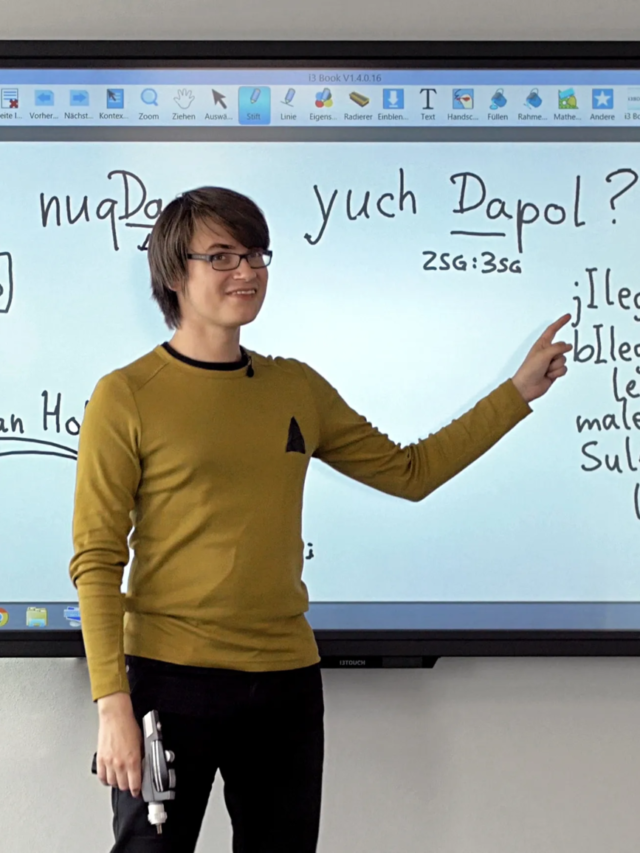 I3 Book V1.4.0.16
Vorher... Nächst... Kontex... Zoom Ziehen Auswä... Stift Linie Eigens... Radierer Einblen... Text Handsc... Füllen Rahme... Mathe... Andere
nuqDa yuch Dapol?
2SG:3SG
jIleg
bIleg
le
male
Sul
an Ho
i3TOUCH